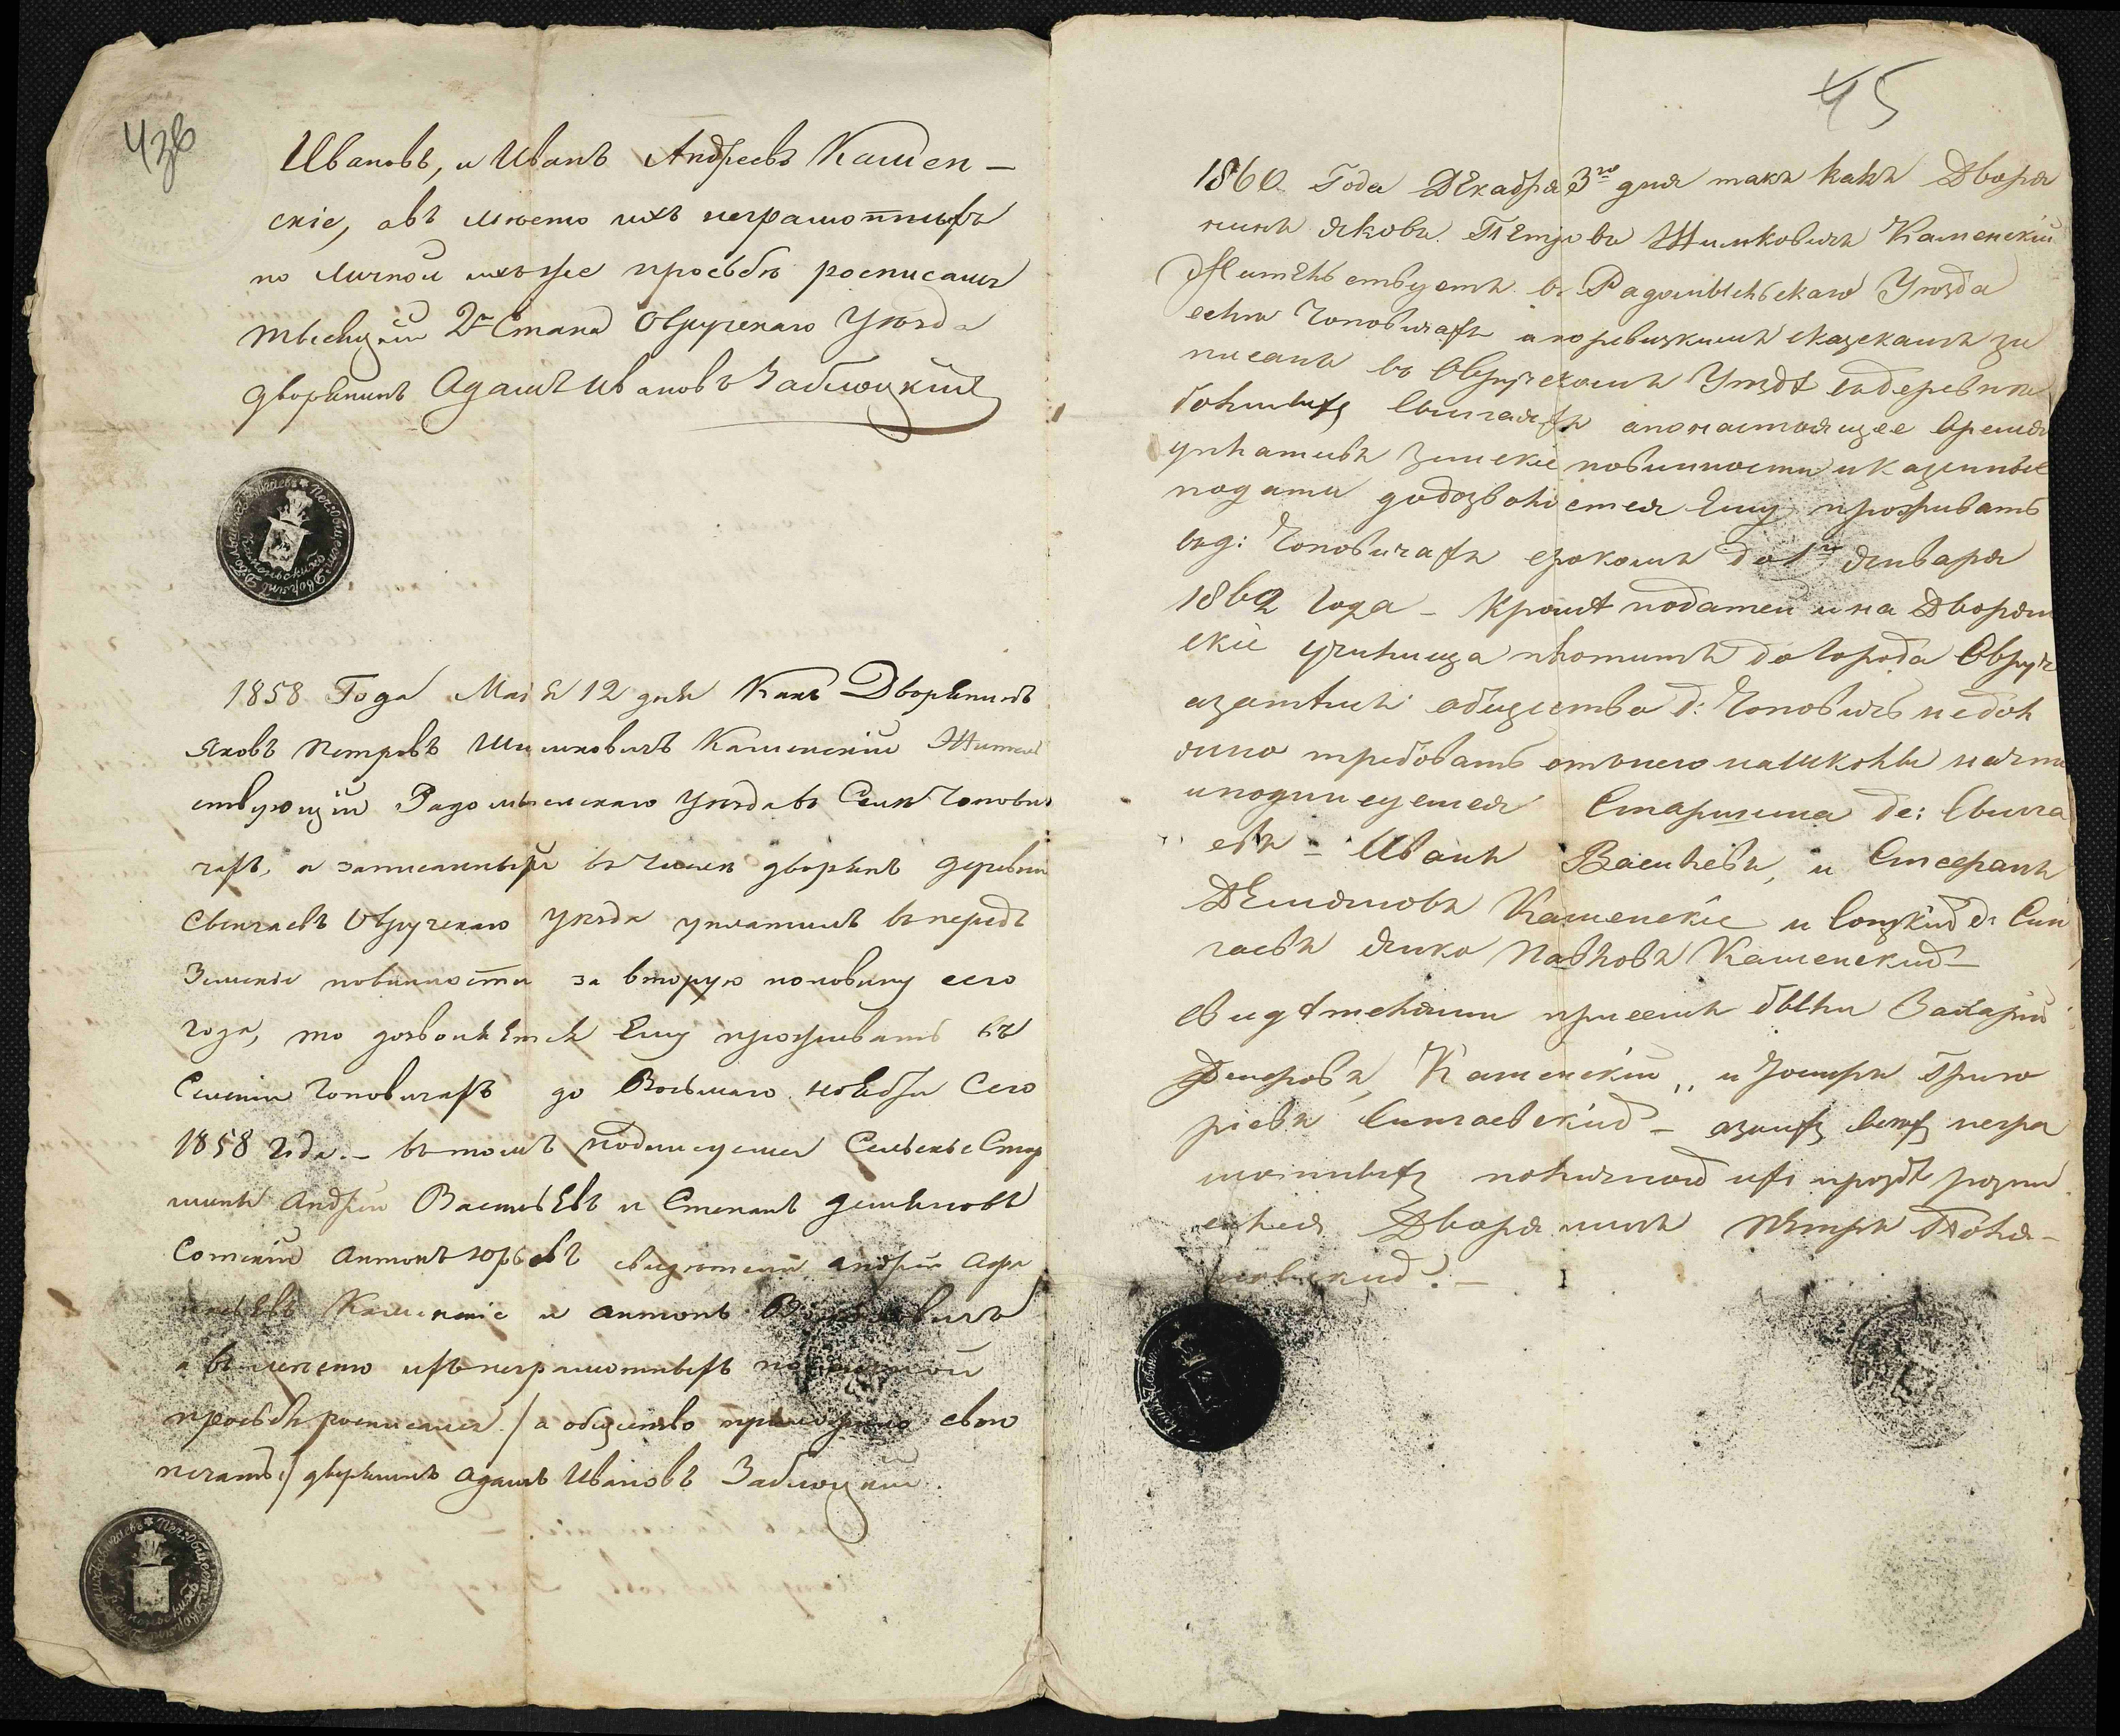 43об
Ивановъ, и Иванъ Андреевъ Камен-
скіе, авъ мѣсто ихъ неграмотныхъ
по личной ихъ же прозьбѣ росписался
тысецкій 2го Стана Овручскаго Уѣзда
дворянинъ Адамъ Ивановъ Заблоцкій
1858 Года Маія 12 дня Какъ Дворянинъ
Яковъ Петровъ Шишковичъ Каменскій Жител
ствующій Радомысльскаго Уѣзда въ Селѣ Чопови
чахъ, а записанный въ числѣ дворянъ деревни
Свычаевъ Овручскаго уѣзда уплатилъ впередъ
Земскіе повинности за вторую половину сего
года, то дозволяется Ему проживать въ
Селеніи Чоповичахъ до Восьмаго ноября Сего
1858 года. – въ томъ подписуемся Сельскіе Стар
шины Андрей Васильевъ и Степанъ Демяновъ
Сотскій Антонъ Юрьевъ свидѣтели Андрей
Каменскіе и Антонъ
а въ мѣсто ихъ неграмотныхъ по личной
прозьбѣ росписался / а общество приложило свою
печать / дворянинъ Адамъ Ивановъ Заблоцкій.
45
1860 Года Декабря 3го дня такъ какъ Дворя
нинъ Яковъ Петровъ Шишковичъ Каменскій
Жительствуетъ в Радомысльскаго Уѣзда
селѣ Чоповичахъ а по ревизкимъ сказскамъ за
писанъ во Овручскомъ Уѣздѣ въ деревни
Свычаяхъ а по настоящее время
уплативъ Земскіе повинности и Казенные
подати до дозволяется Ему проживать
въ д: Чоповичахъ срокомъ до 1го Января
1862 года – Кромѣ податей и на Дворян
скіе училища платитъ до города Овруч
азатѣмъ общество д: Чоповичъ недол
жно требовать отънего на школы
и подписуемся Старшина де: Свыча
евъ – Иванъ Васильевъ, и Стефанъ
Демяновъ Каменскіе и Соцкій д:
чаевъ Янко Павловъ Каменскій –
Свидѣтелями при семъ были Захарій
Федоровъ Каменскій,, и Іосифъ Григо
ріевъ Сычаевскій – азаихъ всѣхъ негра
мотныхъ поличной ихъ прозбѣ розпи
сался Дворянинъ Петръ